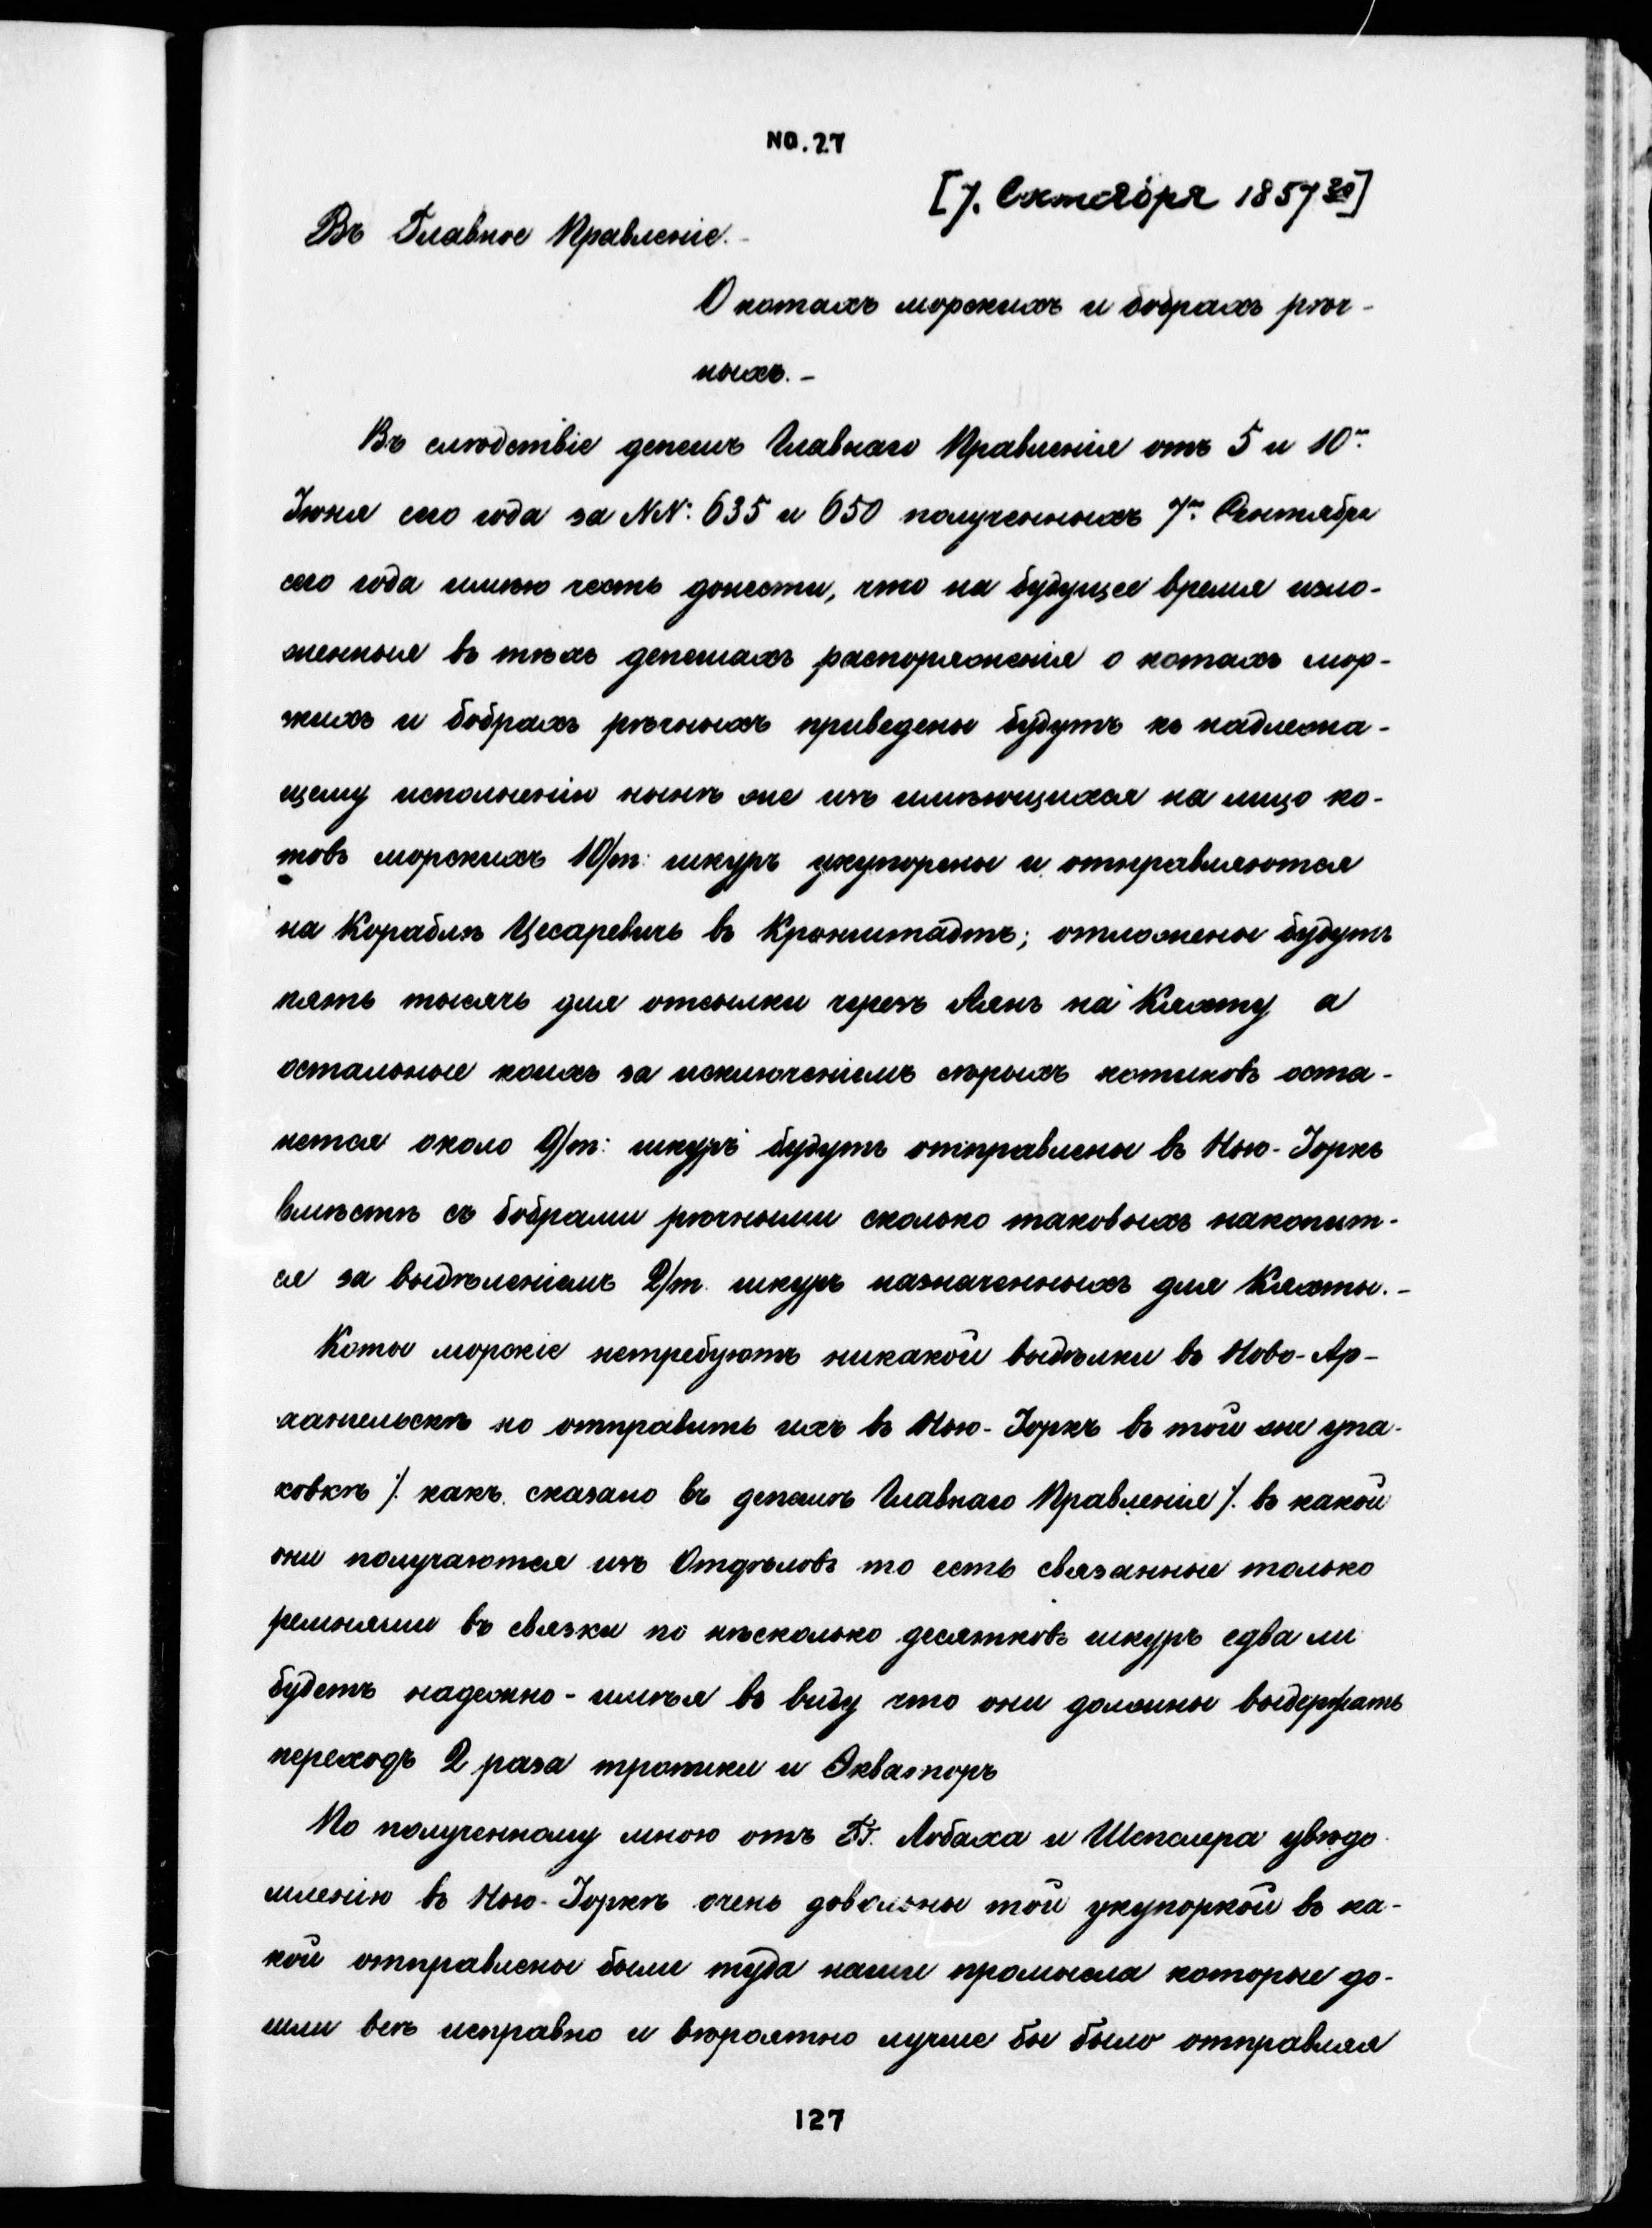 NO. 27
[7. Октября 1857 го]
Въ Главное Правленіе. -
О котахъ морскихъ и бобрахъ рѣч-
ныхъ. -
Въ слѣдствіе депешъ Главнаго Правленія отъ 5 и 10го
Іюня сего года за NN: 635 и 650 полученныхъ 7го Сентября
сего года имѣю честь донести, что на будущее время изло-
женныя въ тѣхъ депешахъ распоряженія о котахъ мор-
скихъ и бобрахъ рѣчныхъ приведены будутъ къ надлежа-
щему исполненію нынѣ же изъ имѣющихся на лицо ко-
товъ морскихъ 10/т: шкуръ укупорены и отправляются
на Кораблѣ Цесаревичъ въ Кронштадтъ; отложены будутъ
пять тысячъ для отсылки чрезъ Аянъ на Кяхту а
остальные коихъ за исключеніемъ сѣрыхъ котиковъ оста-
нется около 9/т: шкуръ будутъ отправлены въ Нью-Іоркъ
вмѣстѣ съ бобрами рѣчными сколько таковыхъ накопит-
ся за выдѣленіемъ 2/т. шкуръ назначенныхъ для Кяхты. -
Коты морскіе нетребуютъ никакой выдѣлки въ Ново-Ар-
хангельскѣ но отправить ихъ въ Нью-Іоркъ въ той же упа-
ковкѣ /. какъ сказано въ депешѣ Главнаго Правленія /. въ какой
они получаются изъ Отдѣловъ то есть связанные только
ремнями въ связки по нѣсколько десятковъ шкуръ едва ли
будетъ надежно - имѣя въ виду что они должны выдержать
переходъ 2 раза тропики и Экваторъ
По полученному мною отъ Гг. Лобаха и Шепелера увѣдо
мленію въ Нью-Іоркѣ очень довольны той укупоркой въ ка-
кой отправлены были туда наши промысла которые до-
шли всѣ исправно и вѣроятно лучше бы было отправляя
127